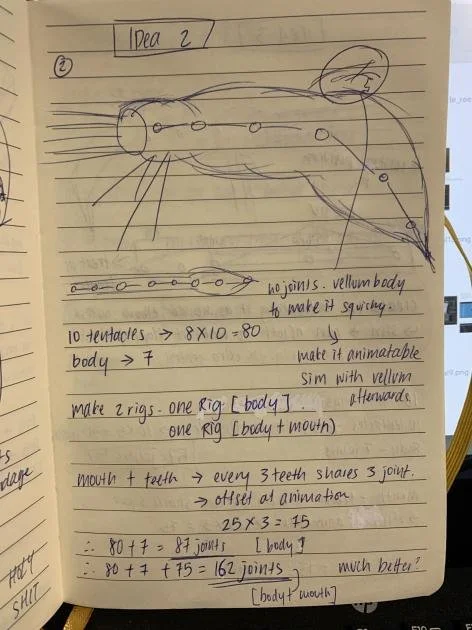 Idea 2
2
no joints. vellum body
to make it squishy.
10 tentacles → 8X10 = 80
body → 7
make it animatable
sim with vellum
afterwards
make 2 rigs. one Rig [body].
one Rig [body + mouth)
mouth + teeth → every 3 teeth shares 3 joint.
→ offset at animation
25 X 3 = 75
∴ 80 + 7 = 87 joints [body]
∴ 80 + 7 + 75 = 162 joints
much better?
[body + mouth]
HOLY
SHIT